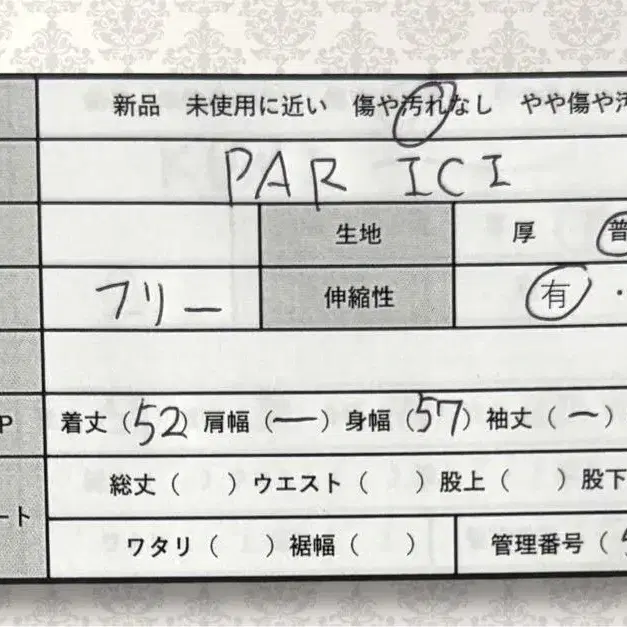 新品 未使用に近い 傷や汚れなし やや傷や汚
PAR ICI
生地 厚 普
フリー 伸縮性 有 ・
P 着丈（52）肩幅（ー）身幅（57）袖丈（ー）
ート 総丈（ ）ウエスト（ ）股上（ ）股下
ワタリ（ ）裾幅（ ） 管理番号（